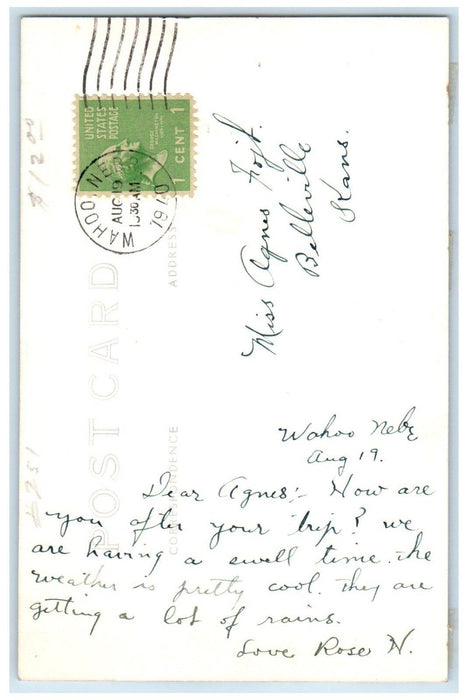 UNITED
STATES
POSTAGE
1 CENT 1
WAHOO, NEBR.
AUG 19
1940
POST CARD
ADDRESS
CORRESPONDENCE
$12.00
Miss Agnes Fojt.
Belleville
Kans.
Wahoo Nebr
Aug 19.
Dear Agnes:- How are
you after your trip? we
are having a swell time. the
weather is pretty cool. They are
getting a lot of rains.
Love Rose N.